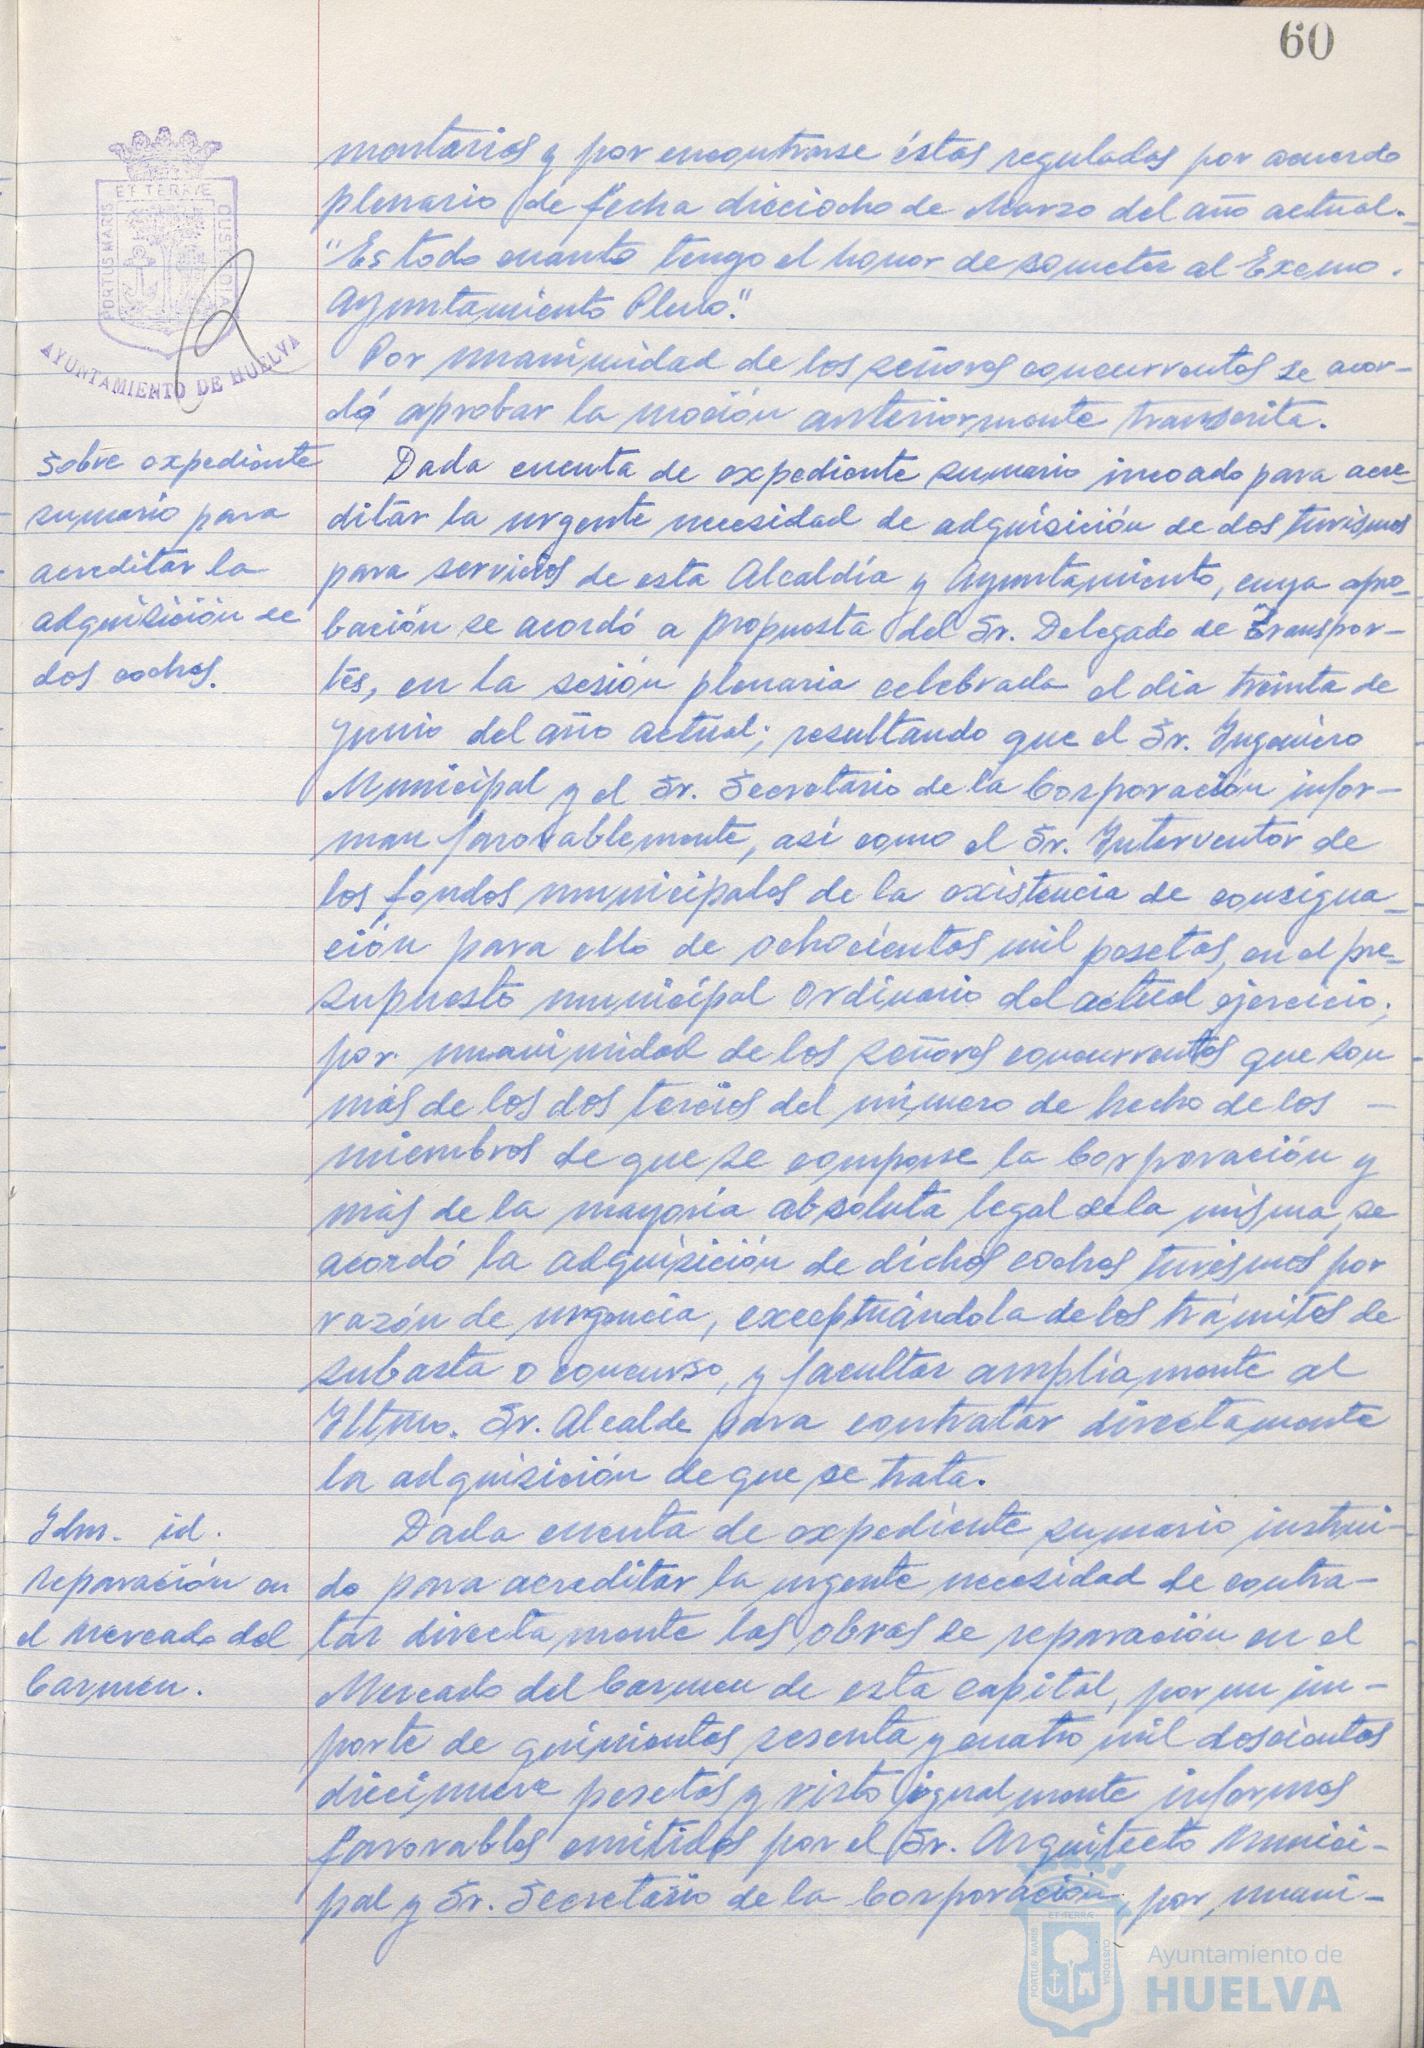 60
ET TERRÆ
PORTUS MARIS
CUSTODIA
AYUNTAMIENTO DE HUELVA
mentarios y por encontrarse éstos regulados por acuerdo
plenario de fecha dieciocho de Marzo del año actual.-
"Es todo cuanto tengo el honor de someter al Excmo.
Ayuntamiento Pleno".
Por unanimidad de los señores concurrentes se acor-
dó aprobar la moción anteriormente transcrita.
Sobre expediente
sumario para
acreditar la
adquisición de
dos coches.
Dada cuenta de expediente sumario incoado para acre-
ditar la urgente necesidad de adquisición de dos turismos
para servicios de esta Alcaldía y Ayuntamiento, cuya apro-
bación se acordó a propuesta del Sr. Delegado de Transpor-
tes, en la sesión plenaria celebrada el día treinta de
Junio del año actual; resultando que el Sr. Ingeniero
Municipal y el Sr. Secretario de la Corporación infor-
man favorablemente, así como el Sr. Interventor de
los fondos municipales de la existencia de consigna-
ción para ello de ochocientas mil pesetas, en el pre-
supuesto municipal ordinario del actual ejercicio;
por unanimidad de los señores concurrentes que son
más de los dos tercios del número de hecho de los -
miembros de que se compone la Corporación y
más de la mayoría absoluta legal de la misma, se
acordó la adquisición de dichos coches turismos por
razón de urgencia, exceptuándola de los trámites de
subasta o concurso, y facultar ampliamente al
Iltmo. Sr. Alcalde para contratar directamente
la adquisición de que se trata.
Idm. id.
reparación en
el Mercado del
Carmen.
Dada cuenta de expediente sumario instrui-
do para acreditar la urgente necesidad de contra-
tar directamente las obras de reparación en el
Mercado del Carmen de esta capital, por un im-
porte de quinientas sesenta y cuatro mil doscientas
diecinueve pesetas y visto igualmente informes
favorables emitidos por el Sr. Arquitecto Munici-
pal y Sr. Secretario de la Corporación, por unani-
ET TERRÆ
PORTUS MARIS
CUSTODIA
Ayuntamiento de
HUELVA